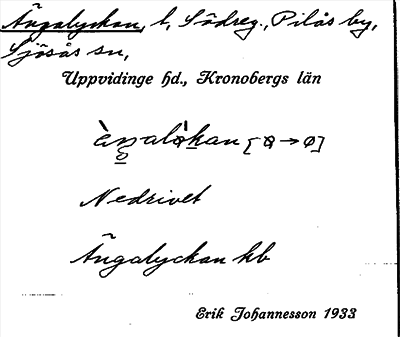 Ängalyckan, l, Södreg., Pilås by,
Sjösås sn,
Uppvidinge hd., Kronobergs län
Nedrivet
Ängalyckan kb
Erik Johannesson 1933